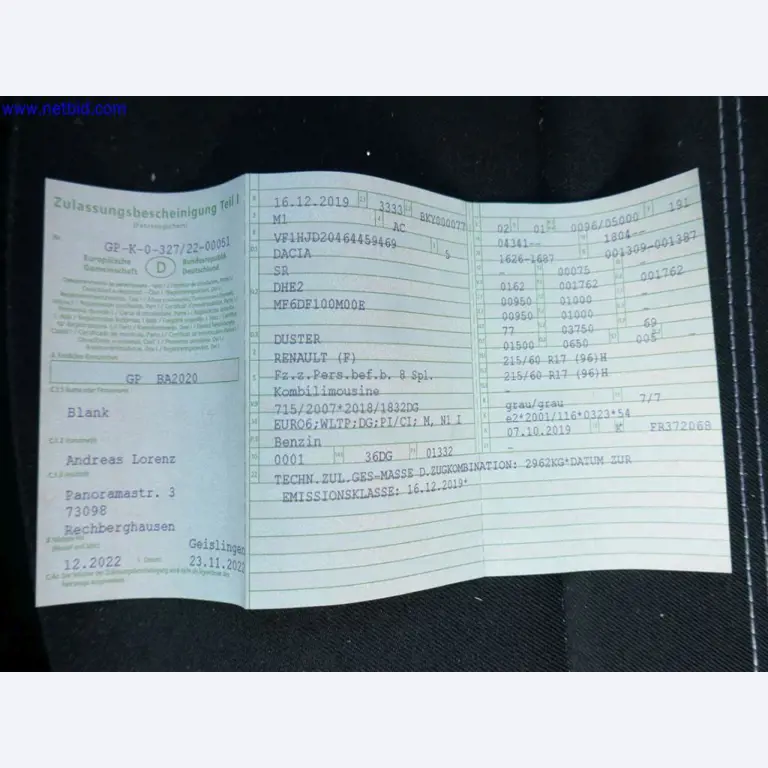 www.netbid.com
Zulassungsbescheinigung Teil I
(Fahrzeugschein)
Nr.
GP-K-0-327/22-00051
Europäische Gemeinschaft
D
Bundesrepublik Deutschland
GP BA2020
C.1.1
Blank
C.1.2
Andreas Lorenz
C.1.3
Panoramastr. 3
73098
Rechberghausen
Geislingen
12.2022
23.11.202
16.12.2019 3333 BKY000077
M1 AC
VF1HJD20464459469 5
DACIA
SR
DHE2
MF6DF100M00E
DUSTER
RENAULT (F)
Fz.z.Pers.bef.b. 8 Spl.
Kombilimousine
715/2007*2018/1832DG
EURO6;WLTP;DG;PI/CI; M, N1 I
Benzin
0001 36DG 01332
TECHN.ZUL.GES-MASSE D.ZUGKOMBINATION: 2962KG*DATUM ZUR
EMISSIONSKLASSE: 16.12.2019*
02 01 0096/05000 191
04341-- 1804--
1626-1687 001309-001387
- 00075 -
0162 001762 001762
00950 01000 -
00950 01000 -
77 03750 69
01500 0650 005 -
215/60 R17 (96)H
215/60 R17 (96)H
-
grau/grau 7/7
e2*2001/116*0323*54
07.10.2019 K FR372068
-